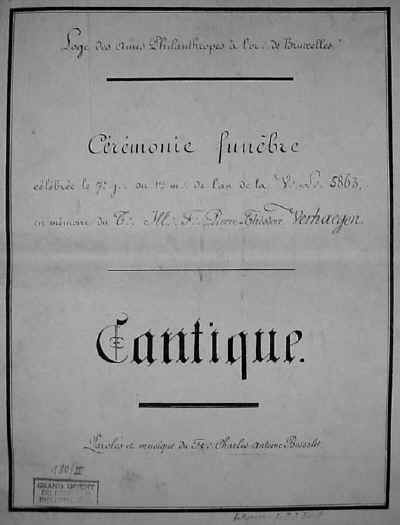 Loge des Amis Philanthropes à l'or∴ de Bruxelles.
Cérémonie funèbre
célébrée le 7e j∴ du 1er m∴ de l'an de la V∴ L∴ 5863,
en mémoire du T∴ Ill∴ F∴ Pierre Théodore Verhaegen.
Cantique.
Paroles et musique du F∴ Charles Antoine
180/II
GRAND ORIENT